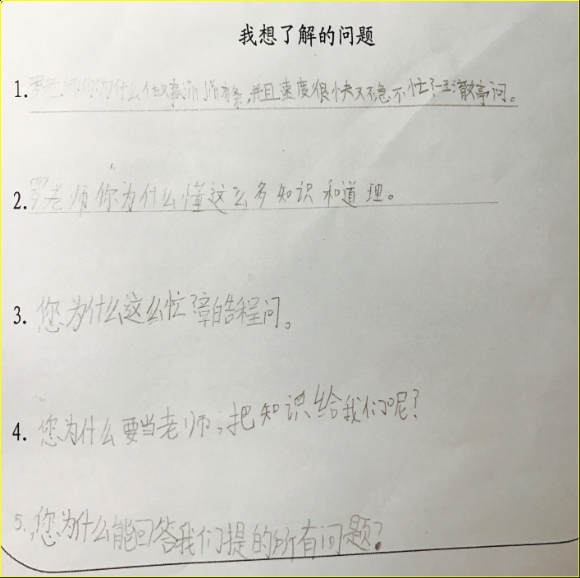 我想了解的问题
1.罗老师你为什么做事有条,并且速度很快又不急不忙
2.罗老师你为什么懂这么多知识和道理。
3.您为什么这么忙 程问。
4.您为什么要当老师,把知识给我们呢?
5.您为什么能回答我们提的所有问题?